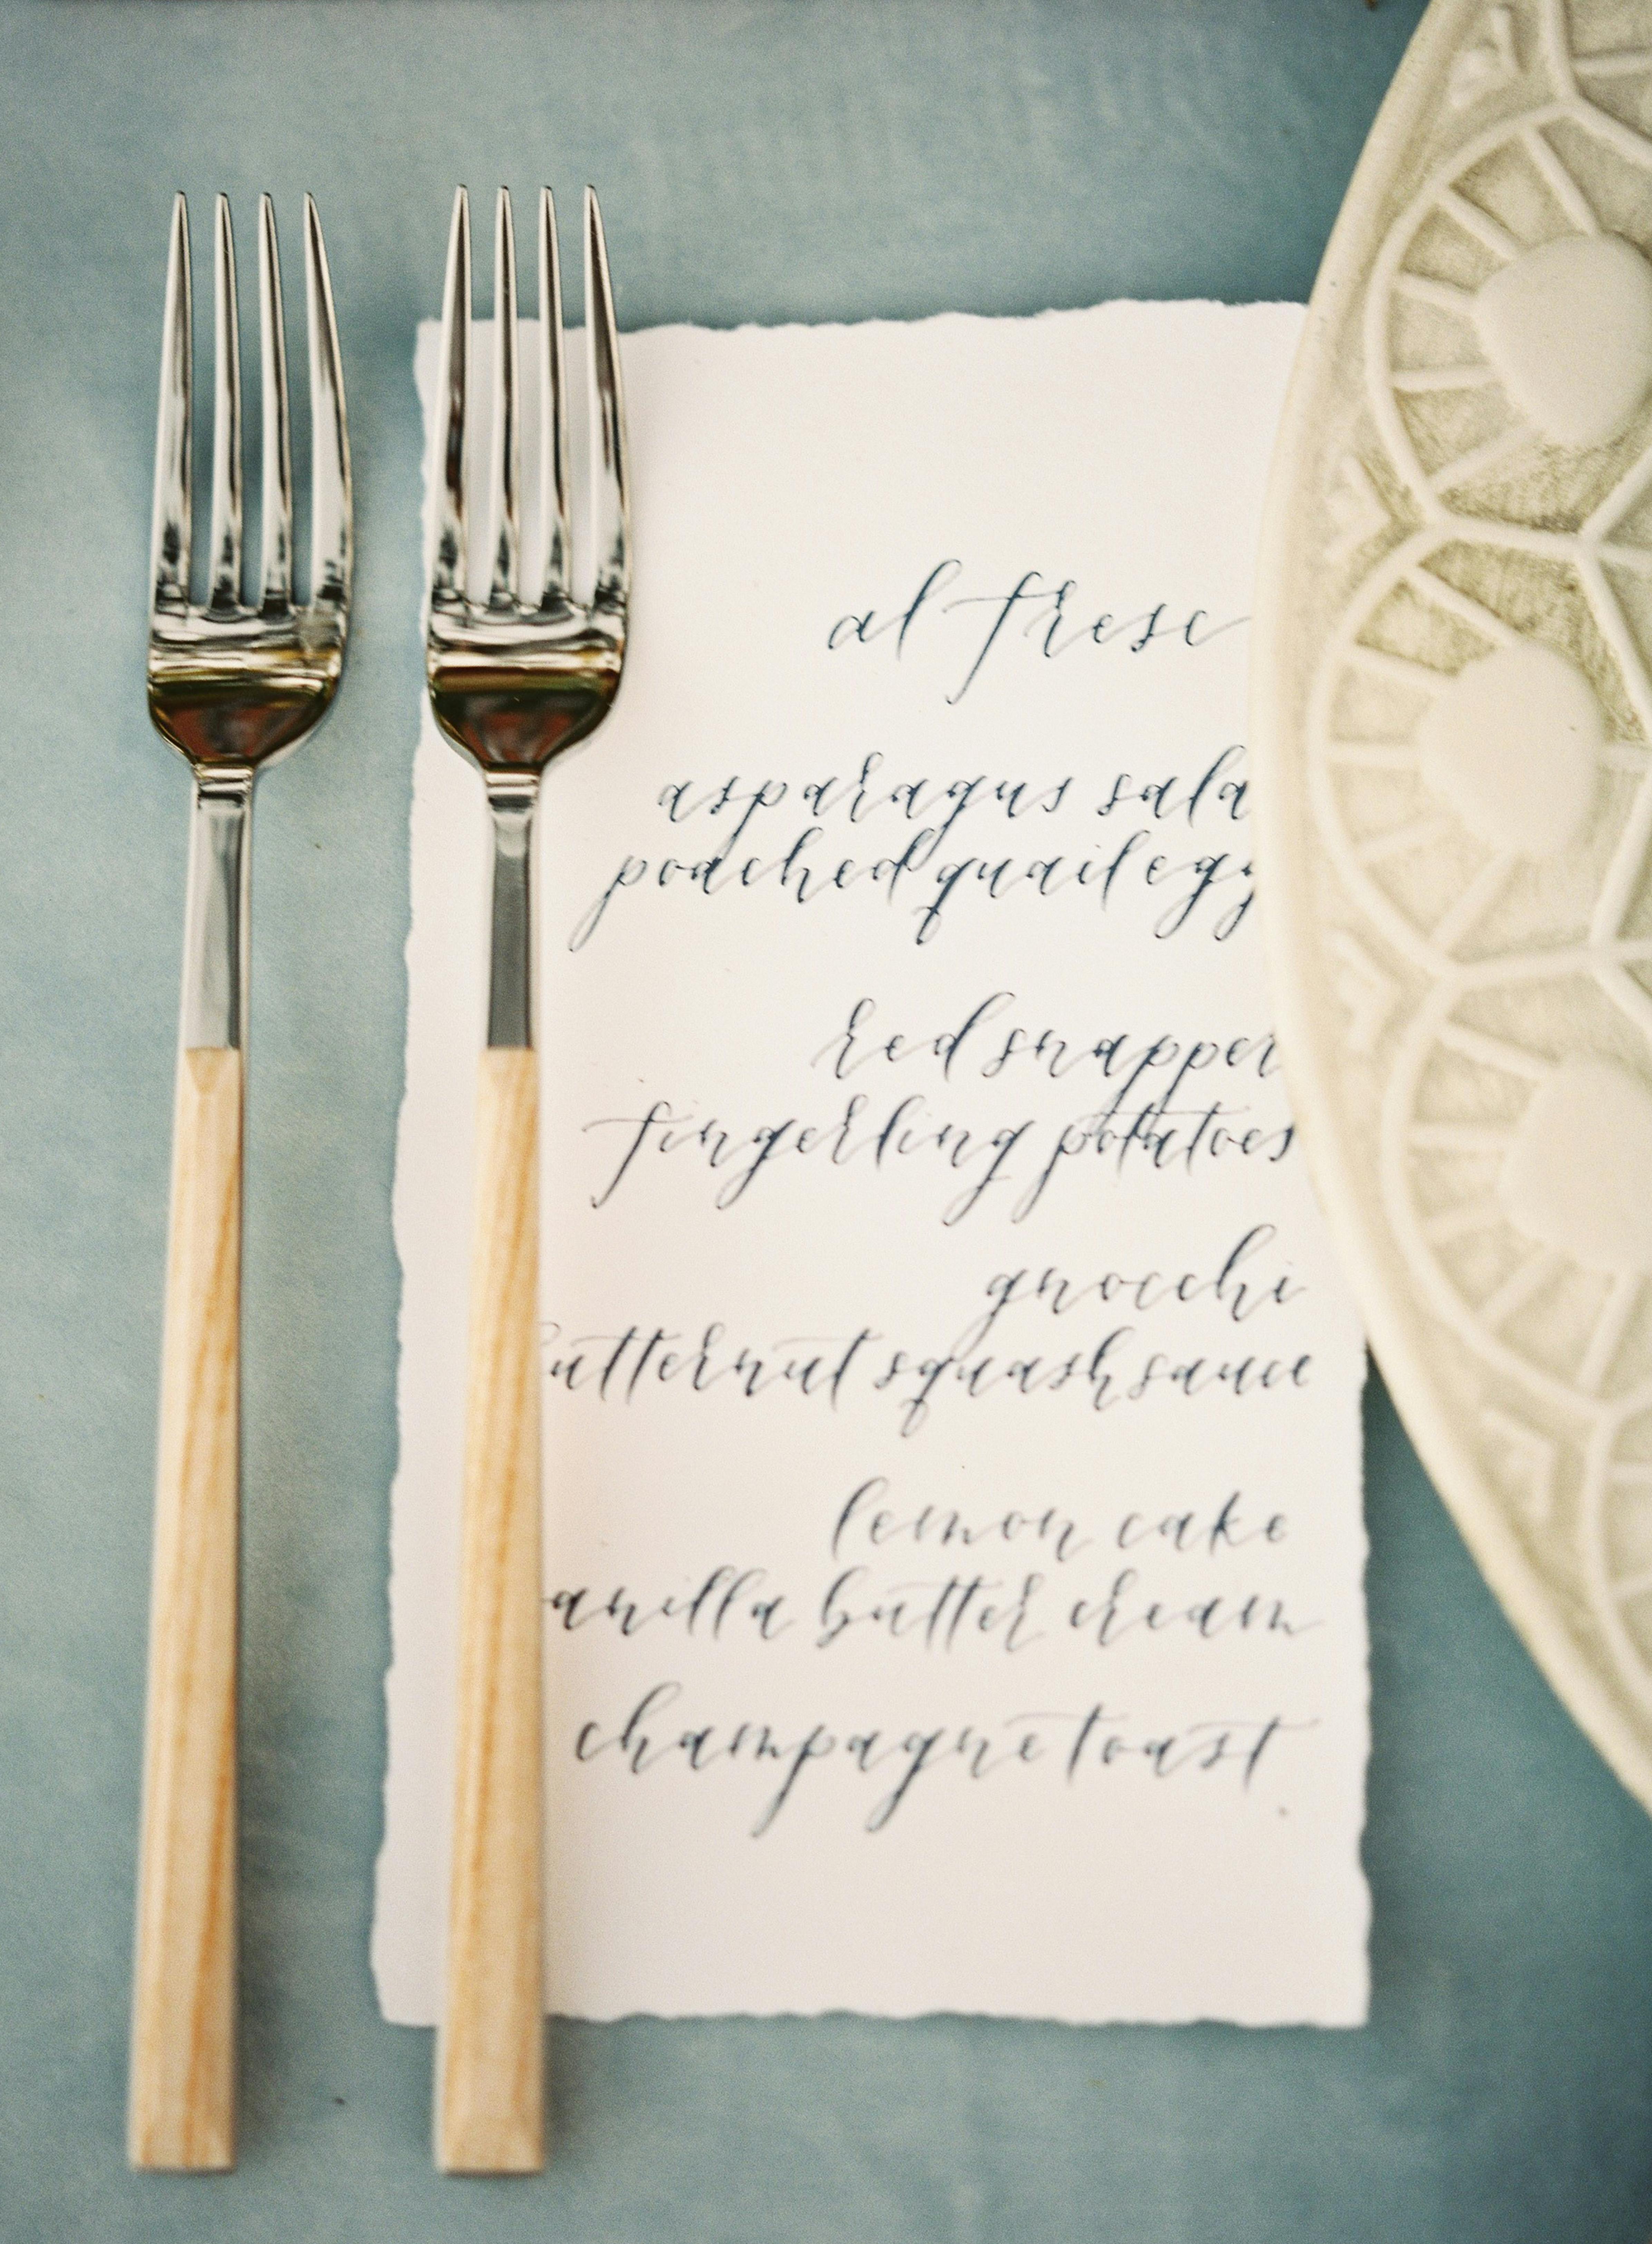 al fresc
asparagus sala
poached quail egg
red snapper
fingerling potatoes
gnocchi
utternut squash sauce
lemon cake
anilla butter cream
champagne toast